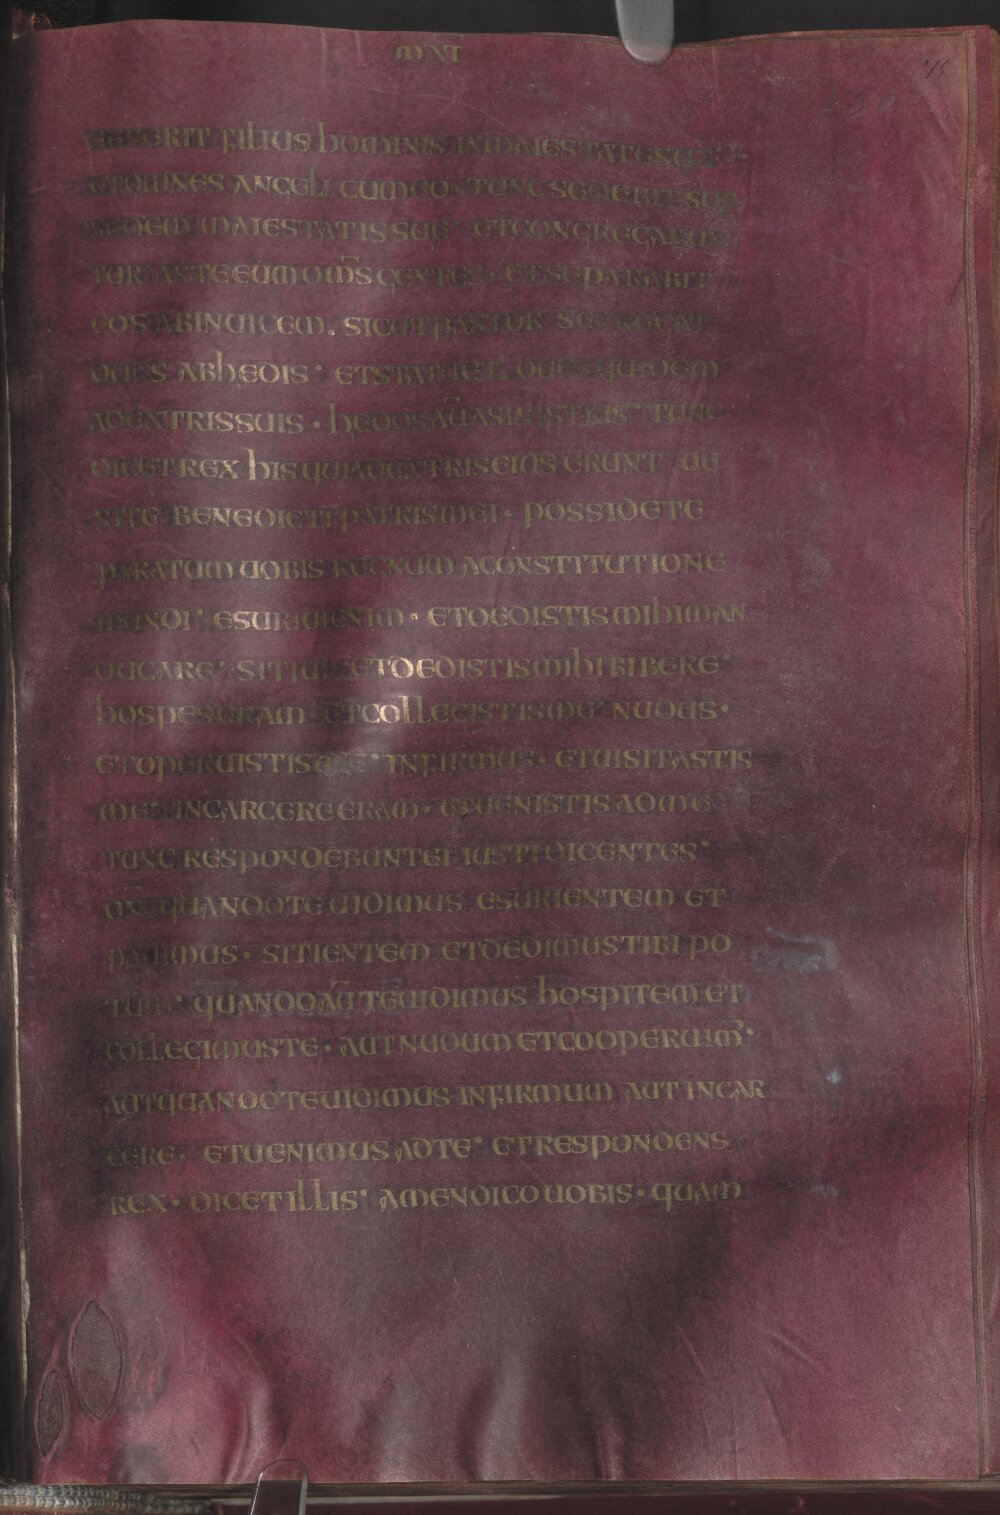 MAT
75
UENERIT FILIUS hOMINIS INMAIESTATESUA
ETOMNES ANGELI CUMEO · TUNCSEDEBITSUP
SEDEM MAIESTATIS SUE · ETCONGREGABUN
TUR ANTEEUM OMS GENTES · ETSEPARABIT
EOS ABINUICEM · SICUTPASTOR SEGREGAT
OUES ABhEDIS · ETSTATUET OUES QUIDEM
ADEXTRISSUIS · hEDOSAUASINISTRIS · TUNC
DICETREX hIS QUIADEXTRISEIUS ERUNT · UE
NITE BENEDICTI PATRISMEI · POSSIDETE
PARATUM UOBIS REGNUM ACONSTITUTIONE
MUNDI · ESURIUIENIM · ETDEDISTISMIhIMAN
DUCARE · SITIUI ETDEDISTISMIhI BIBERE ·
hOSPESERAM ETCOLLEGISTISME NUDUS ·
ETOPERUISTISME · INFIRMUS · ETUISITASTIS
ME · INCARCEREERAM · ETUENISTIS ADME
TUNC RESPONDEBUNTEI IUSTI DICENTES ·
DNE QUANDOTE UIDIMUS ESURIENTEM ET
PAUIMUS · SITIENTEM ETDEDIMUSTIBI PO
TUM · QUANDOAUTEUIDIMUS hOSPITEM ET
COLLEGIMUSTE · AUTNUDUM ETCOOPERUIM ·
AUTQUANDOTEUIDIMUS INFIRMUM AUT INCAR
CERE · ETUENIMUS ADTE · ETRESPONDENS
REX · DICETILLIS · AMENDICO UOBIS · QUAM